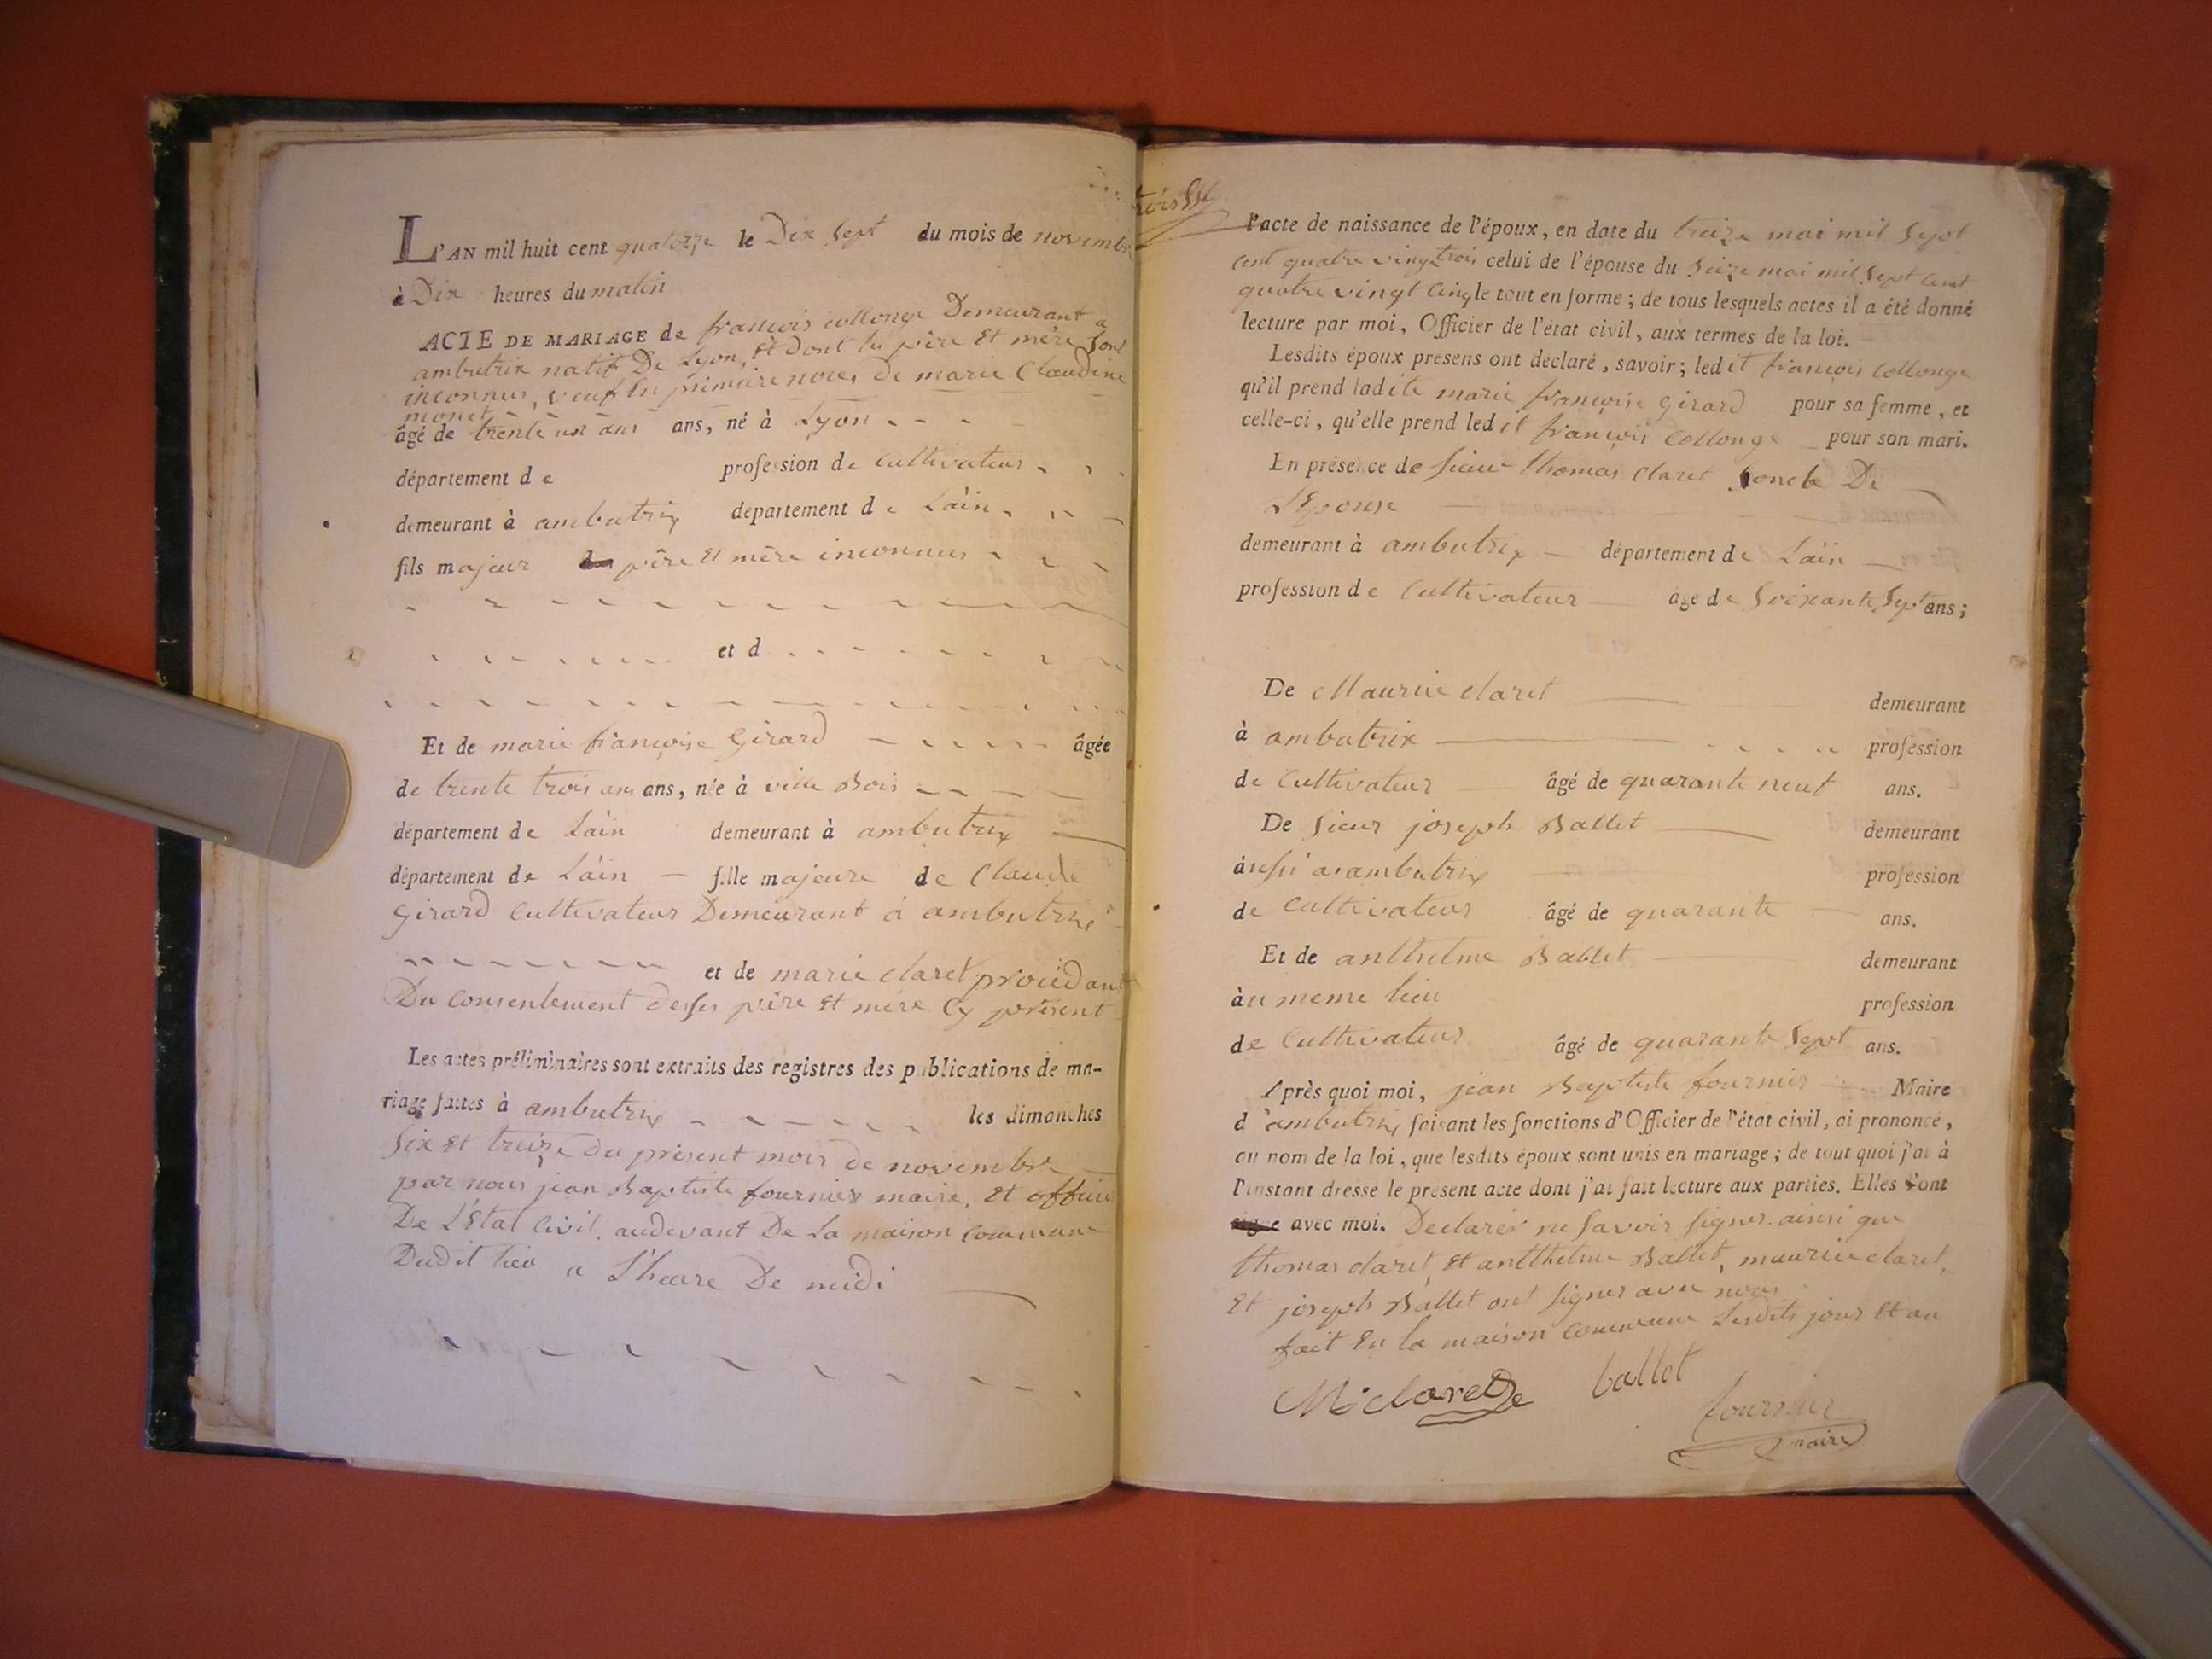 L'AN mil huit cent quatorze le Dix Sept du mois de novembre
à Dix heures du matin
ACTE DE MARIAGE de francois collonge Demeurant a
ambutrix natif De Lyon, Et dont les père Et mère Sont
inconnus, veuf En primière noces de marie Claudine
monet
âgé de trente un ans ans, né à Lyon
département de profession de cultivateur
demeurant à ambutrix département de Lain
fils majeur père Et mère inconnus
et d
Et de marie françoise Girard âgée
de trente trois ans ans, née à ville Bois
département de Lain demeurant à ambutrix
département de Lain fille majeure de Claude
Girard cultivateur Demeurant à ambutrix
et de marie claret procédant
Du consentement desses père Et mère Cy présent
Les actes préliminaires sont extraits des registres des publications de ma-
riage faites à ambutrix les dimanches
Six Et treize du présent mois de novembre
par nous jean Baptiste fournier maire, Et officier
De L'Etat Civil, audevant De La maison Commune
Dudit lieu a L'heure De midi
l'acte de naissance de l'époux, en date du treize mai mil Sept
cent quatre vingtrois celui de l'épouse du Seize mai mil Sept cent
quatre vingt un le tout en forme; de tous lesquels actes il a été donné
lecture par moi, Officier de l'état civil, aux termes de la loi.
Lesdits époux présens ont déclaré, savoir; ledit françois Collonge
qu'il prend ladite marie françoise Girard pour sa femme, et
celle-ci, qu'elle prend ledit françois Collonge pour son mari.
En présence de sieur thomas Claret oncle De
L'Epouse
demeurant à ambutrix département de Lain
profession de Cultivateur age de Soixante Sept ans;
De Maurice claret demeurant
à ambutrix profession
de Cultivateur âgé de quarante neuf ans.
De Sieur joseph Ballet demeurant
àussi a ambutrix profession
de Cultivateur âgé de quarante ans.
Et de anthelme Ballet demeurant
àu meme lieu profession
de Cultivateur âgé de quarante Sept ans.
Après quoi moi, jean Baptiste fournier Maire
d'ambutrix faisant les fonctions d'Officier de l'état civil, ai prononcé,
au nom de la loi, que lesdits époux sont unis en mariage; de tout quoi j'ai à
l'instant dressé le présent acte dont j'ai fait lecture aux parties. Elles ont
avec moi. Declarés ne Savoir Signer ainsi que
thomas claret, Et antthelme Ballet, maurice claret,
Et joseph Ballet ont Signer avec nous
fait En la maison commune Lesdits jour Et an
M. Claret ballet
fournier
maire